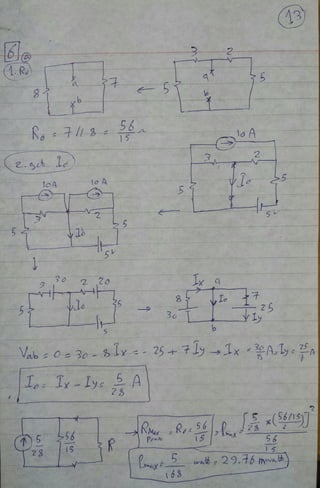 13
6 a
1. R0
8 a b 7 ← 5 3 2 a b 5
R0 = 7 // 8 = 56/15 Ω
10A
2. sch I0
3 2
I0
5 5
5v
10A 10A
3 2
5 I0 5
←
↓
3 30 2 20
5 I0 5
5
→
Ix a
8 I0 7
30 25
Iy
b
Vab = 0 = 30 - 8 Ix = -25 + 7 Iy → Ix = 30/8 A, Iy = 25/7 A
I0 = Ix - Iy = 5/28 A
5/28 56/15 R → RMax power = R0 = 56/15, Pmax = [5/28 × (56/15)/2]² / 56/15
Pmax = 5/168 watt = 29.76 mwatt